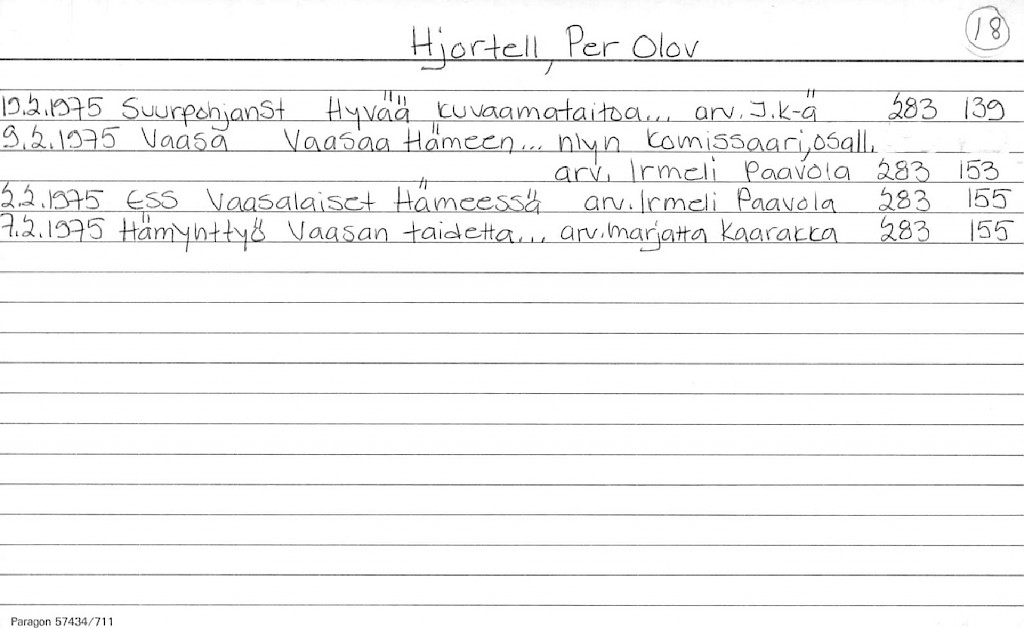 18
Hjortell, Per Olov
19.2.1975 Suurpohjanst Hyvää kuvaamataitoa... arv. J.k-ä 283 139
9.2.1975 Vaasa Vaasaa Hämeen... nlyn komissaari, osall.
arv. Irmeli Paavola 283 153
2.2.1975 ESS Vaasalaiset Hämeessä arv. Irmeli Paavola 283 155
7.2.1975 Hämyhttyö Vaasan taidetta... arv. Marjatta Kaarakka 283 155
Paragon 57434/711